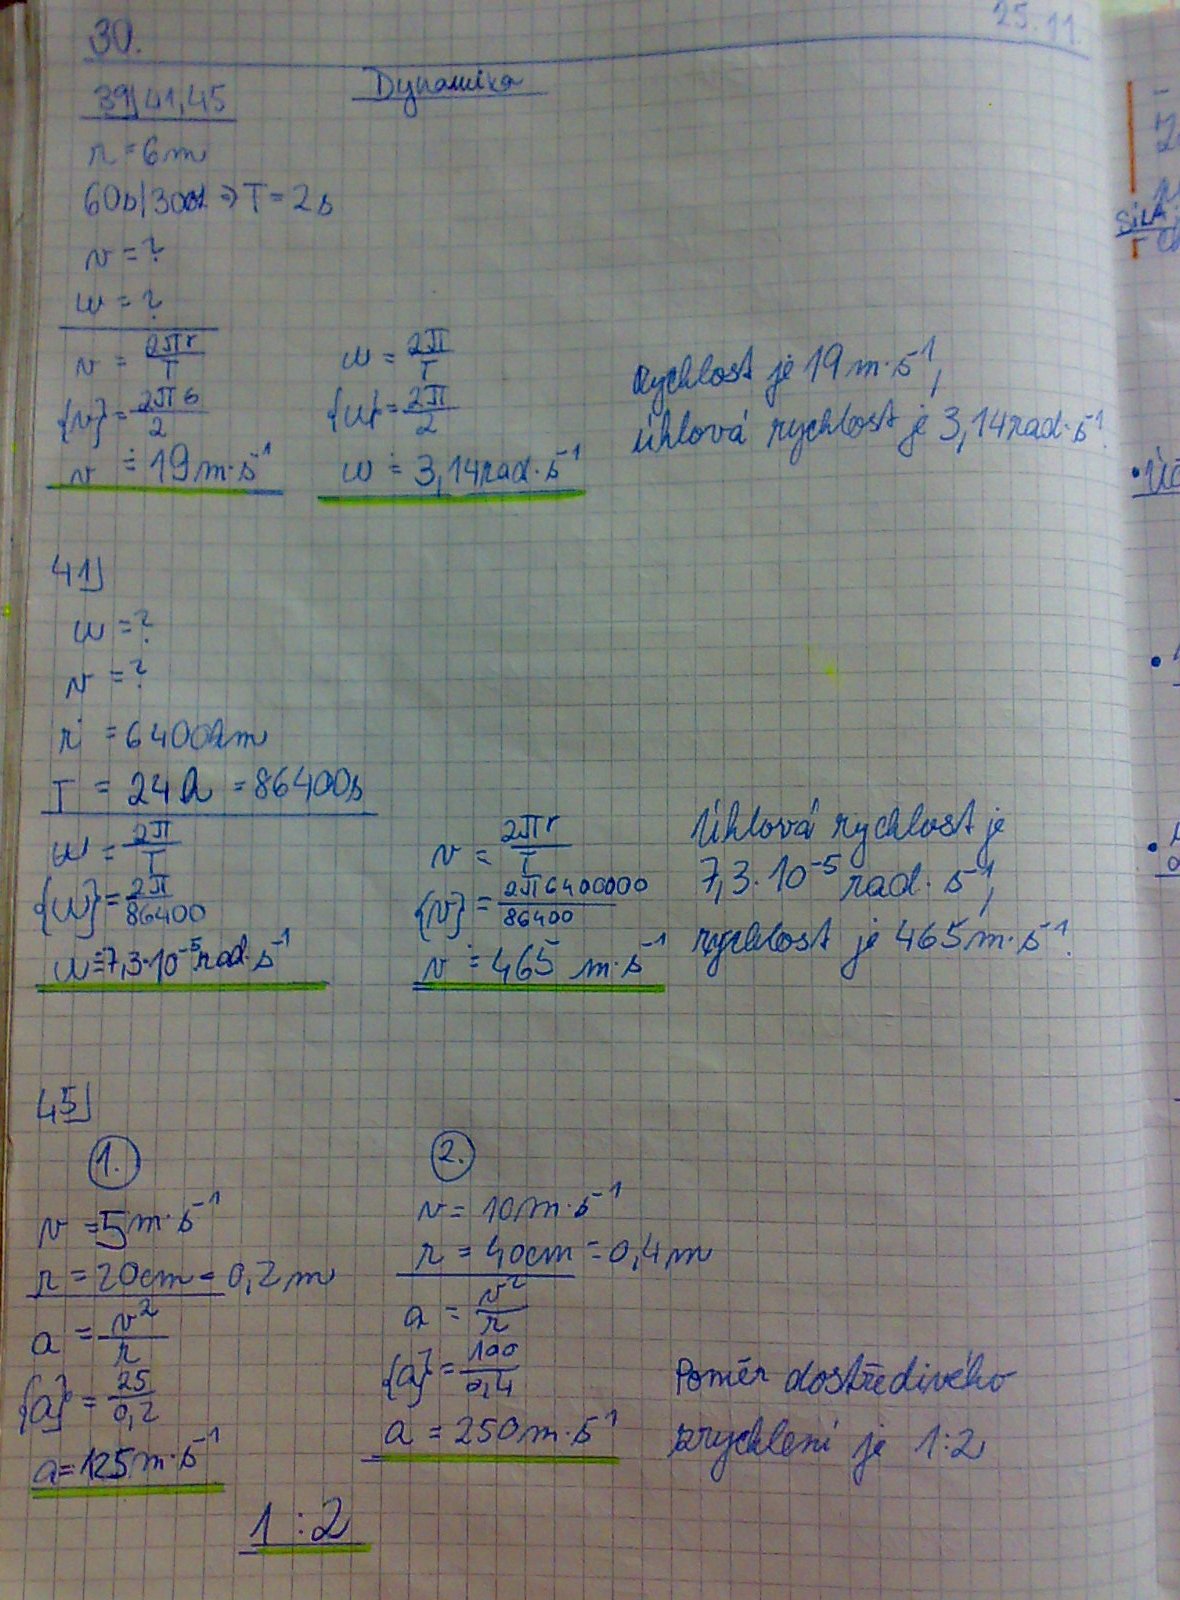 30.
25.11.
Dynamika
39) 41, 45
r = 6m
60s/30ot ⇒ T = 2s
v = ?
ω = ?
v = 2πr/T
ω = 2π/T
{v} = 2π6/2
{ω} = 2π/2
v ≐ 19 m·s⁻¹
ω ≐ 3,14 rad·s⁻¹
Rychlost je 19 m·s⁻¹,
úhlová rychlost je 3,14 rad·s⁻¹.
41)
ω = ?
v = ?
r = 6400km
T = 24h = 86400s
ω = 2π/T
{ω} = 2π/86400
ω ≐ 7,3·10⁻⁵ rad·s⁻¹
v = 2πr/T
{v} = 2π6400000/86400
v ≐ 465 m·s⁻¹
Úhlová rychlost je
7,3·10⁻⁵ rad·s⁻¹,
rychlost je 465 m·s⁻¹.
45)
1.
v = 5 m·s⁻¹
r = 20cm = 0,2m
a = v²/r
{a} = 25/0,2
a = 125 m·s⁻¹
2.
v = 10 m·s⁻¹
r = 40cm = 0,4m
a = v²/r
{a} = 100/0,4
a = 250 m·s⁻¹
Poměr dostředivého
zrychlení je 1:2
1 : 2
SÍLA